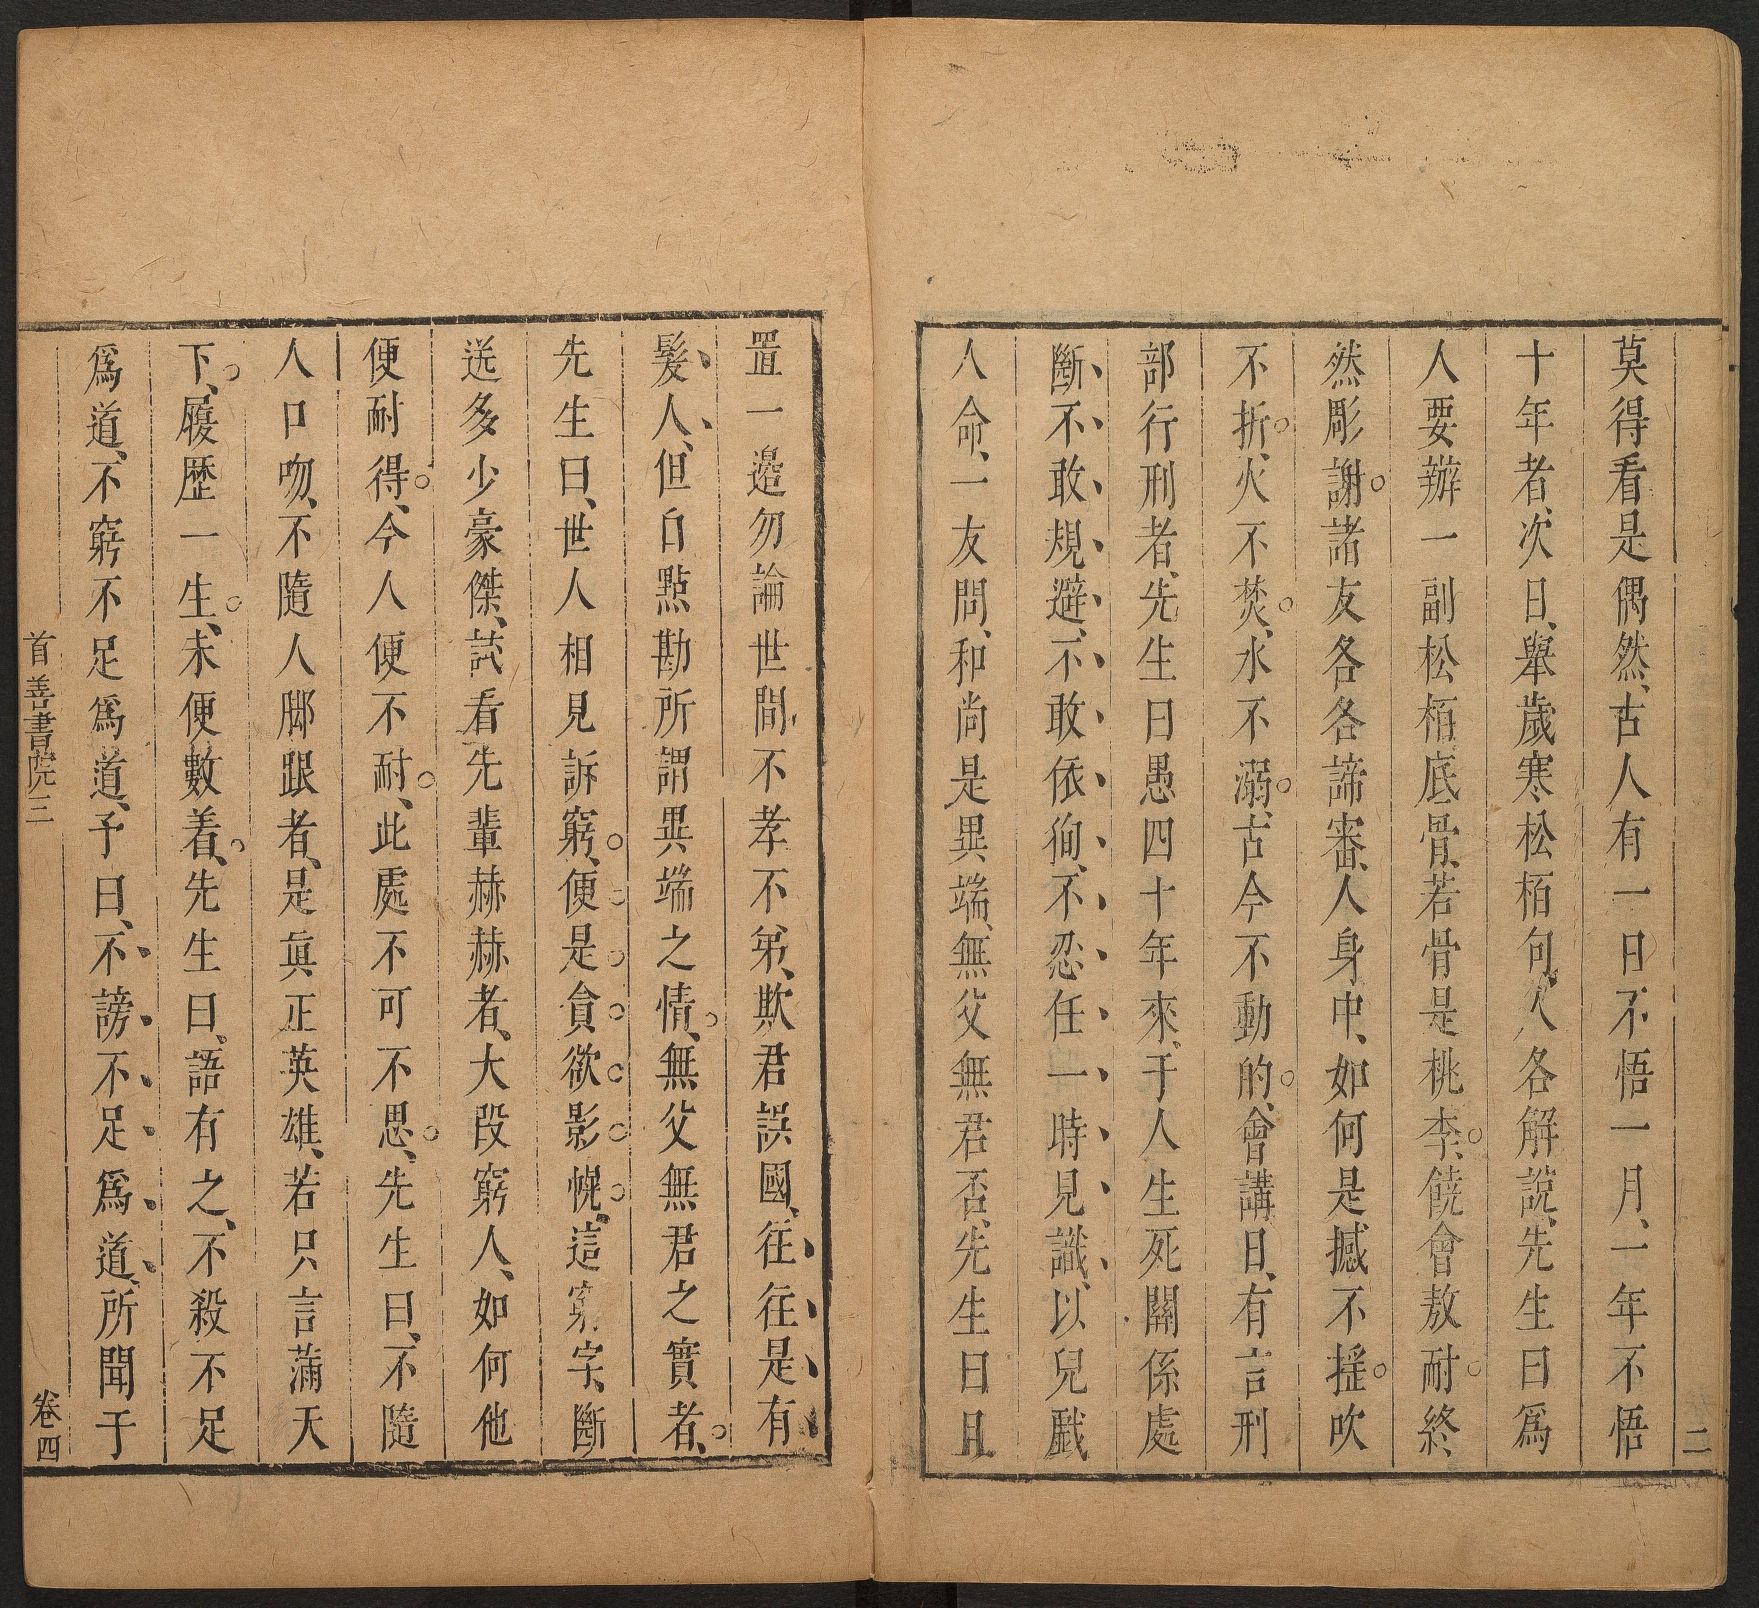 二
莫得看是偶然、古人有一日不悟一月、一年不悟
十年者、次日、舉歲寒松栢句、人各解説、先生曰爲
人要辦一副松栢底骨、若骨是桃李、饒會敖耐終
然彫謝。諸友各各諦審、人身中、如何是撼不揺。吹
不折。火不焚。水不溺。古今不動的。會講日、有言刑
部行刑者、先生曰愚四十年來、于人生死關係處
斷不敢規避、不敢依徇、不忍任一時見識、以兒戯
人命、一友問、和尚是異端、無父無君否、先生曰且
置一邉勿論世間不孝不弟、欺君誤國、往往是有
髮人、但自點勘所謂異端之情、無父無君之實者。
先生曰、世人相見訴窮。便是貪欲影幌。這窮字、斷
送多少豪傑、試看先輩赫赫者、大段窮人、如何他
便耐得。今人便不耐。此處不可不思。先生曰、不隨
人口吻、不隨人脚跟者、是眞正英雄、若只言滿天
下。履歴一生。未便數着。先生曰、語有之、不殺不足
爲道、不窮不足爲道、予曰、不謗不足爲道、所聞于
首善書院三
卷四